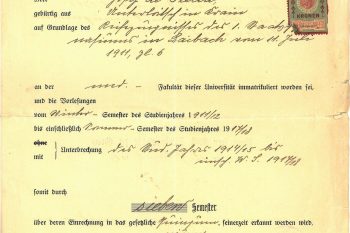 gebürtig aus Unterlötsch in Krain
auf Grundlage des Reifezeugnisses des I. Staatsgym-
nasiums in Laibach vom 11. Juli
1911, Zl. 6
KRONEN
an der med. Fakultät dieser Universität immatrikuliert worden sei,
und die Vorlesungen
vom Winter-Semester des Studienjahres 1911/12
bis einschließlich Sommer-Semester des Studienjahres 1917/18
ohne
mit Unterbrechung des Stud. Jahres 1914/15 bis
W. S. 1917/18
somit durch
sieben Semester
über deren Einrechnung in das gesetzliche seinerzeit erkannt werden wird.